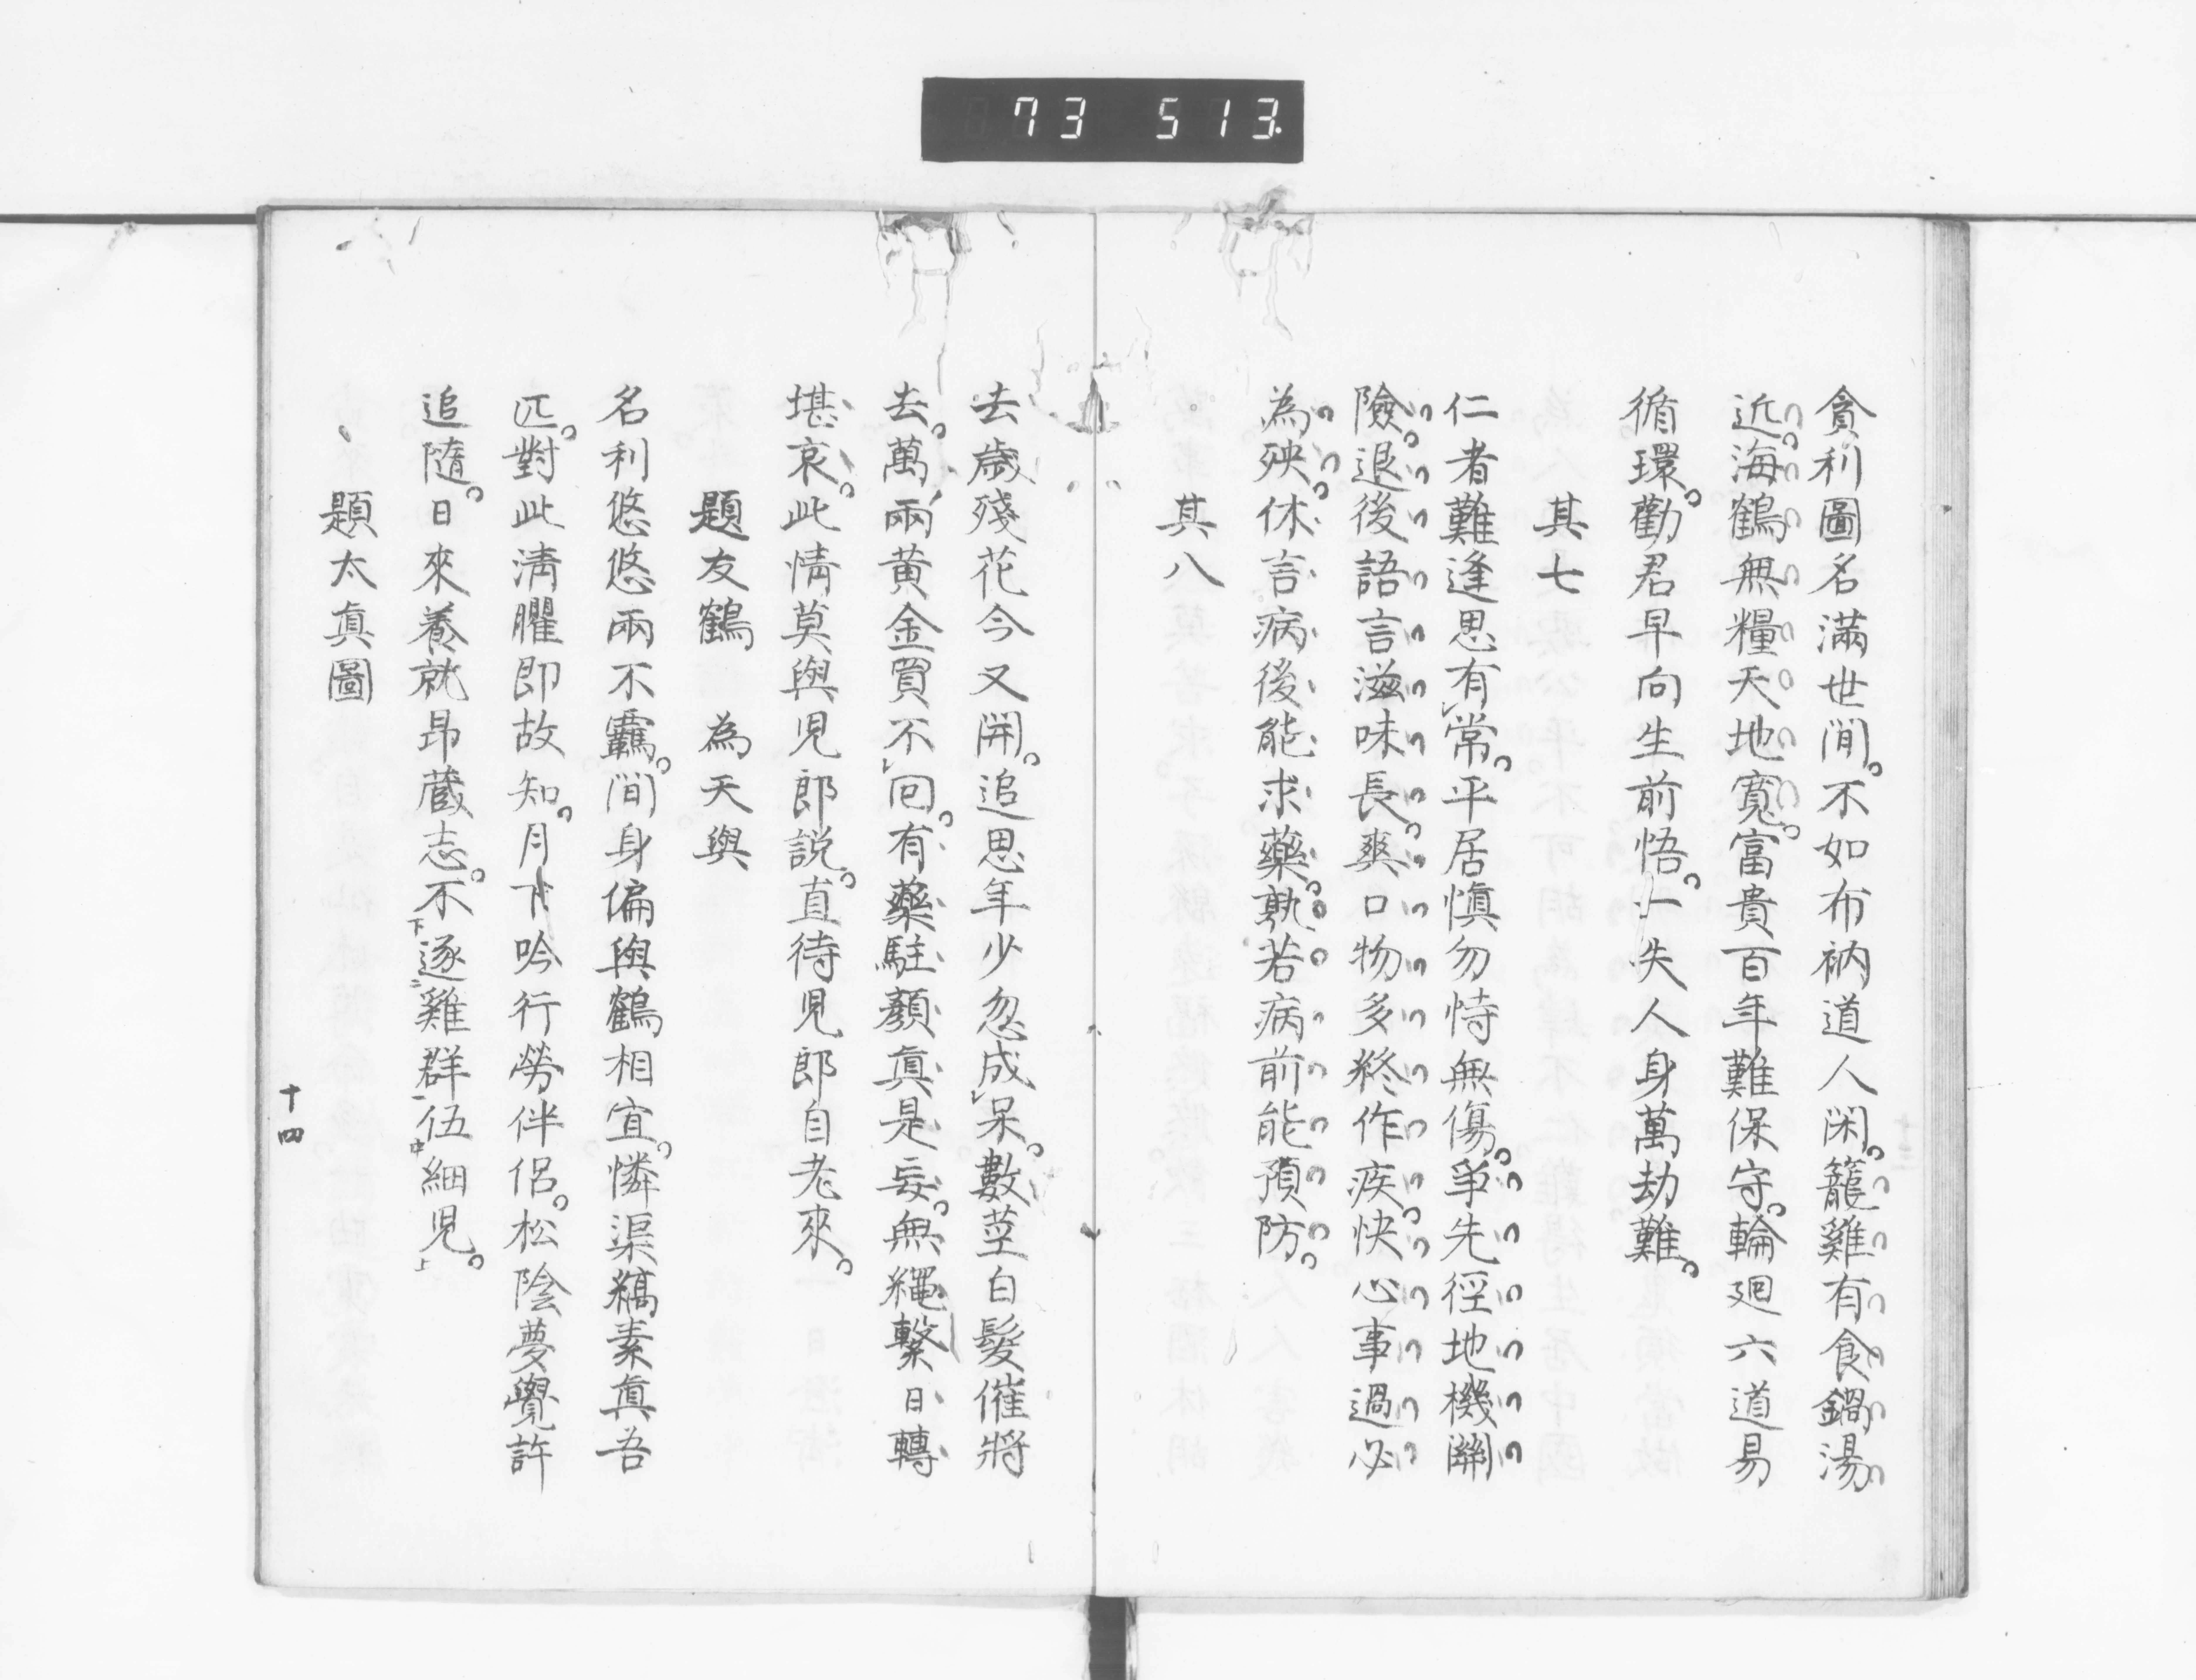 73 513.
貪利圖名滿世間。不如布衲道人閑。籠雞有食鍋湯
近。海鶴無糧天地寬。富貴百年難保守。輪廻六道易
循環。勸君早向生前悟。一失人身萬劫難。
其七
仁者難逢思有常。平居慎勿恃無傷。爭先徑地機關
險。退後語言滋味長。爽口物多終作疾。快心事過必
為殃。休言病後能求藥。孰若病前能預防。
其八
去歲殘花今又開。追思年少忽成呆。數莖白髮催將
去。萬兩黃金買不回。有藥駐顏真是妄。無繩繫日轉
堪哀。此情莫與兒郎說。直待兒郎自老來。
題友鶴 為天與
名利悠悠兩不羈。間身偏與鶴相宜。憐渠縞素真吾
匹。對此清臞即故知。月下吟行勞伴侶。松陰夢覺許
追隨。日來養就昂藏志。不下逐二雞群一伍中細兒。上
題太真圖
十四